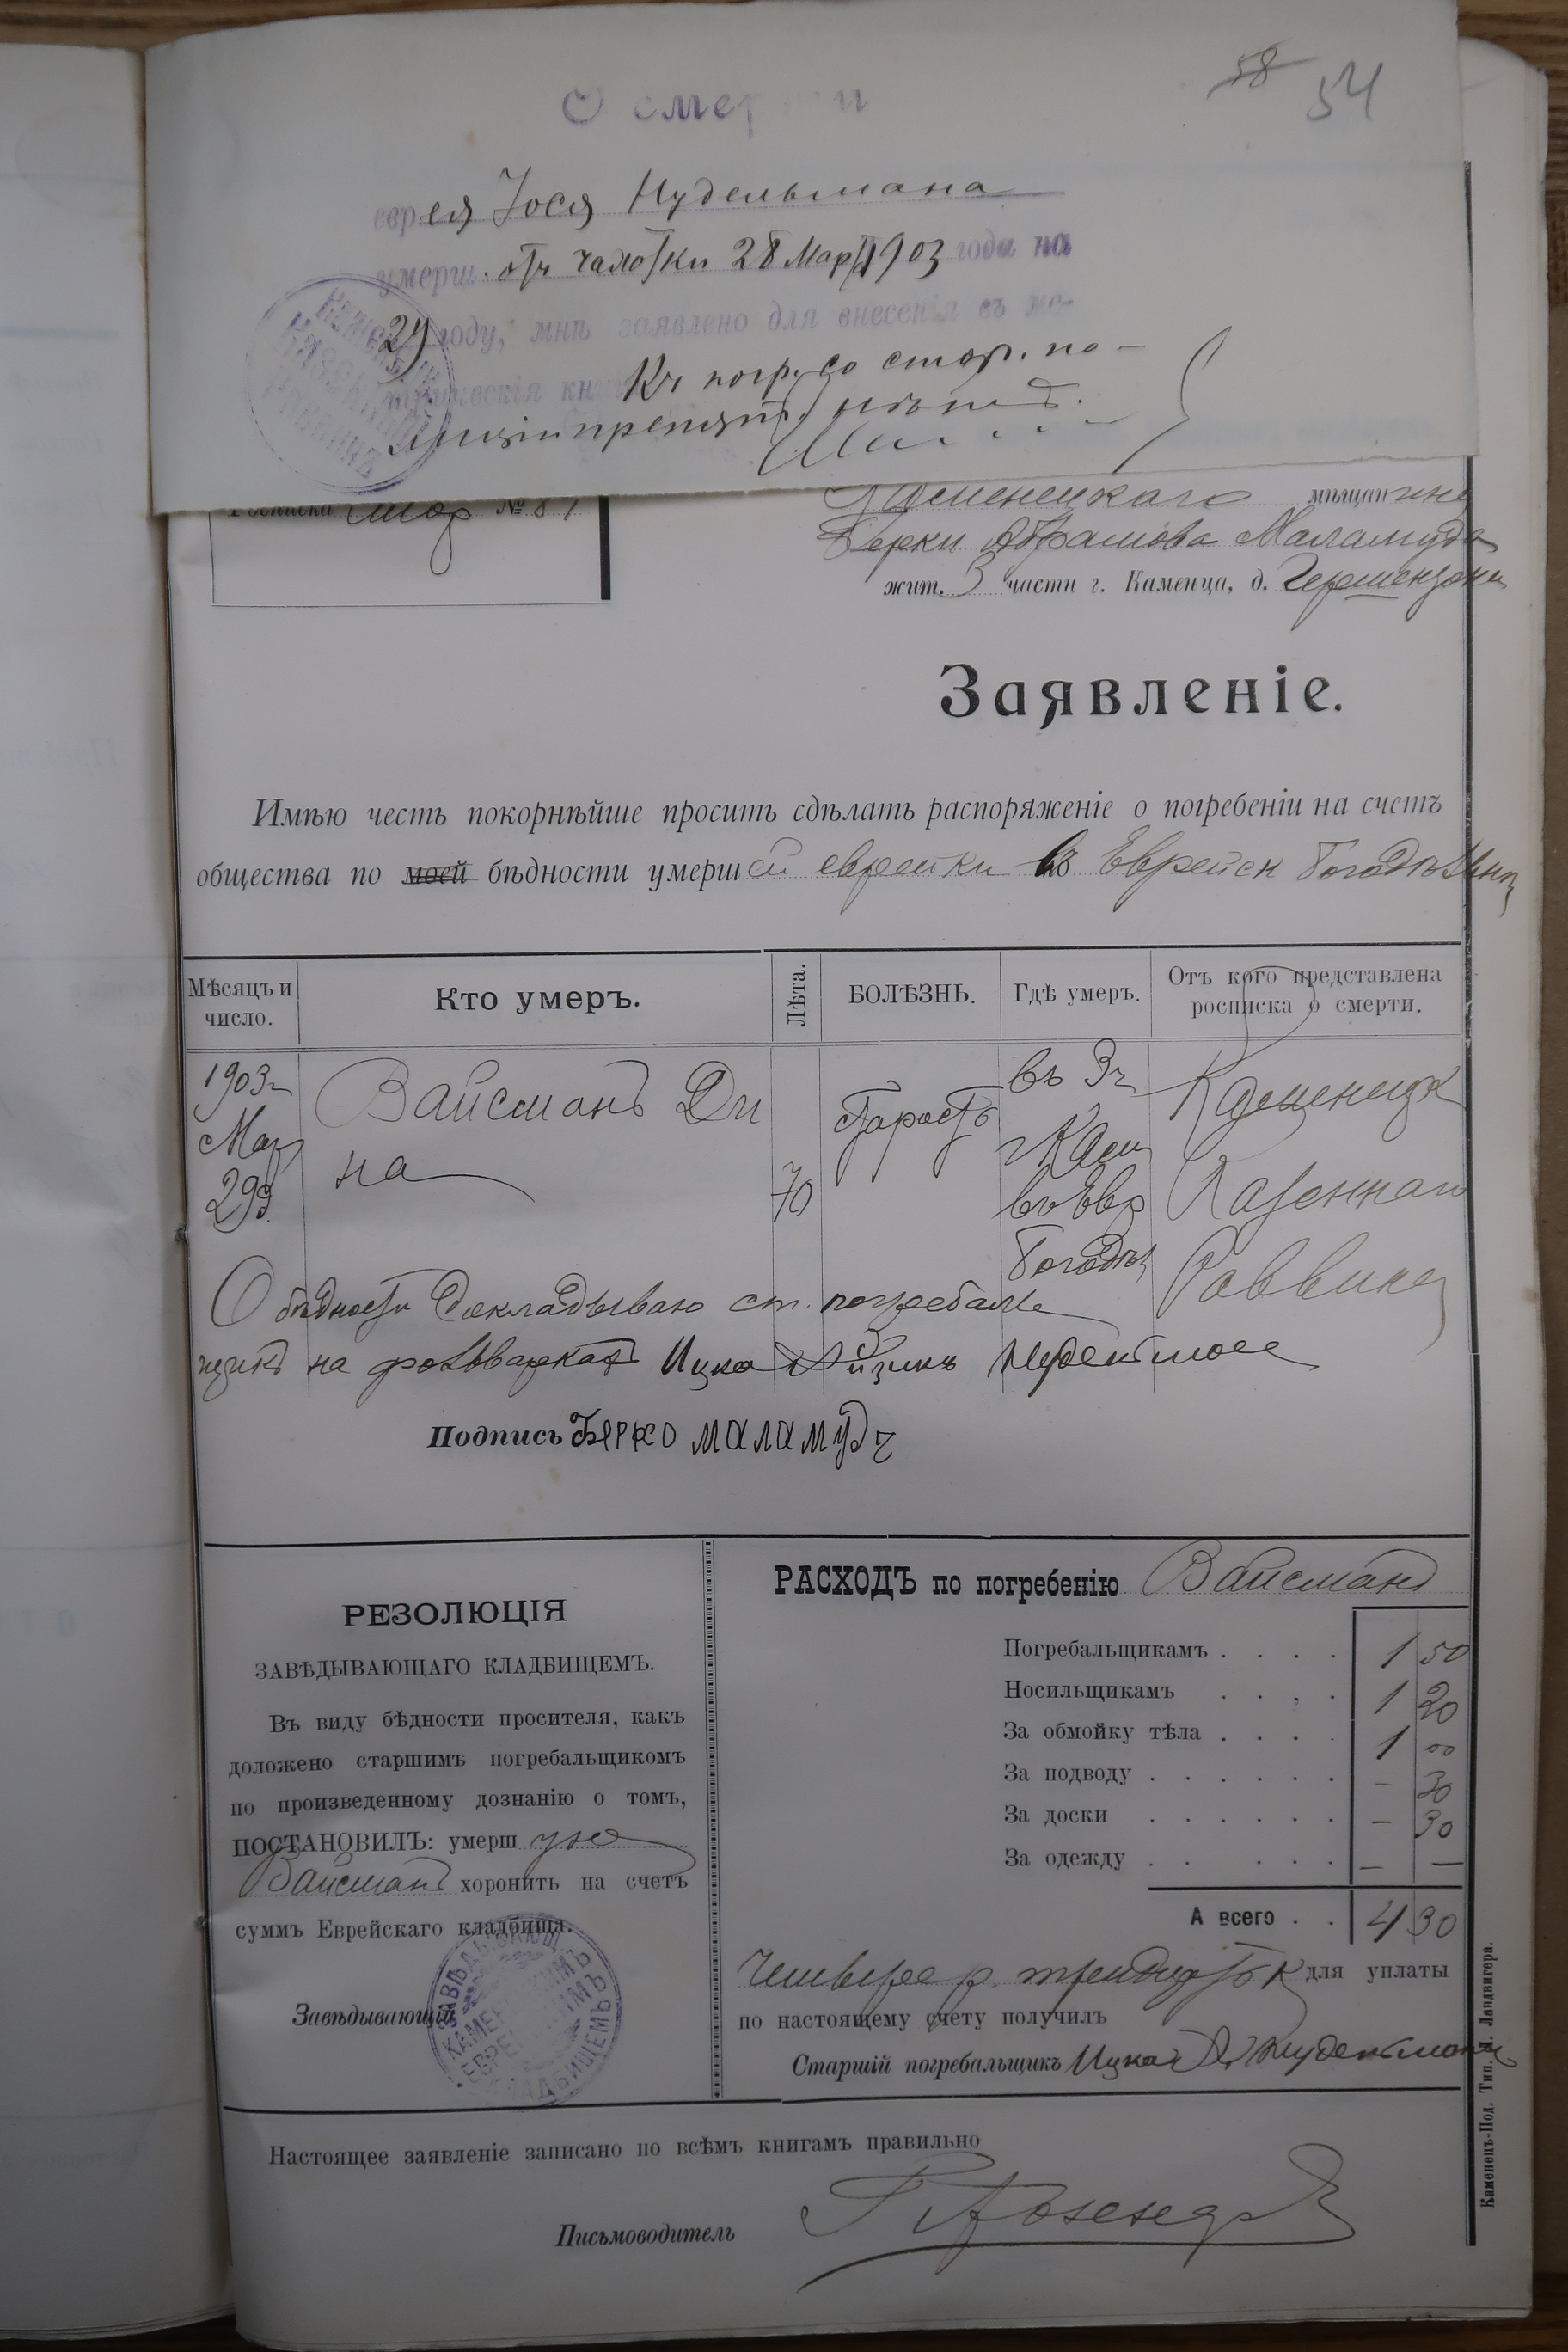 58 54
О смер и
еврея Іося Нудельмана
умерш. отъ чахотки 28 Март 1903 года на
29 году, мнѣ заявлено для внесенія въ ме-
трическія кн
Къ погр. со стор. по-
лиціи препят. нѣтъ
Росписки №
Каменецкаго мѣщанина
Берки Абрамова Маламуда
жит. 3 части г. Каменца, д. Гершензона
Заявленіе.
Имѣю честь покорнѣйше просить сдѣлать распоряженіе о погребеніи на счетъ
общества по моей бѣдности умершей еврейки въ Еврейск Богодѣльни
Мѣсяцъ и число. Кто умеръ. Лѣта. БОЛѢЗНЬ. Гдѣ умеръ. Отъ кого представлена росписка о смерти.
1903г Вайсманъ Ди въ 3ч Каменецк
Мар на 70 старость г Кам Казеннаго
29д. въ Евр Раввина
Богодѣл
О бѣдности докладываю ст. погребаль
щикъ на фольваркахъ Ицко Айзикъ Нудельман
Подпись Берко Маламудъ
РЕЗОЛЮЦІЯ
ЗАВѢДЫВАЮЩАГО КЛАДБИЩЕМЪ.
Въ виду бѣдности просителя, какъ
доложено старшимъ погребальщикомъ
по произведенному дознанію о томъ,
ПОСТАНОВИЛЪ: умерш ую
Вайсманъ хоронить на счетъ
суммъ Еврейскаго кладбища.
Завѣдывающій
ЗАВѢДЫВАЮЩ
КАМЕН КИМЪ
ЕВРЕ КИМЪ
КЛАДБИЩЕМЪ
РАСХОДЪ по погребенію Вайсманъ
Погребальщикамъ . . . . 1 50
Носильщикамъ . . , . 1 20
За обмойку тѣла . . . . 1 00
За подводу . . . . . . – 30
За доски . . . . . . – 30
За одежду . . . . . — —
А всего . . 4 30
Четыре р. тридцать к для уплаты
по настоящему счету получилъ
Старшій погребальщикъ Ицко А Нудельман
Настоящее заявленіе записано по всѣмъ книгамъ правильно
Письмоводитель
Каменецъ-Под. Тип. Н. Ландвигера.